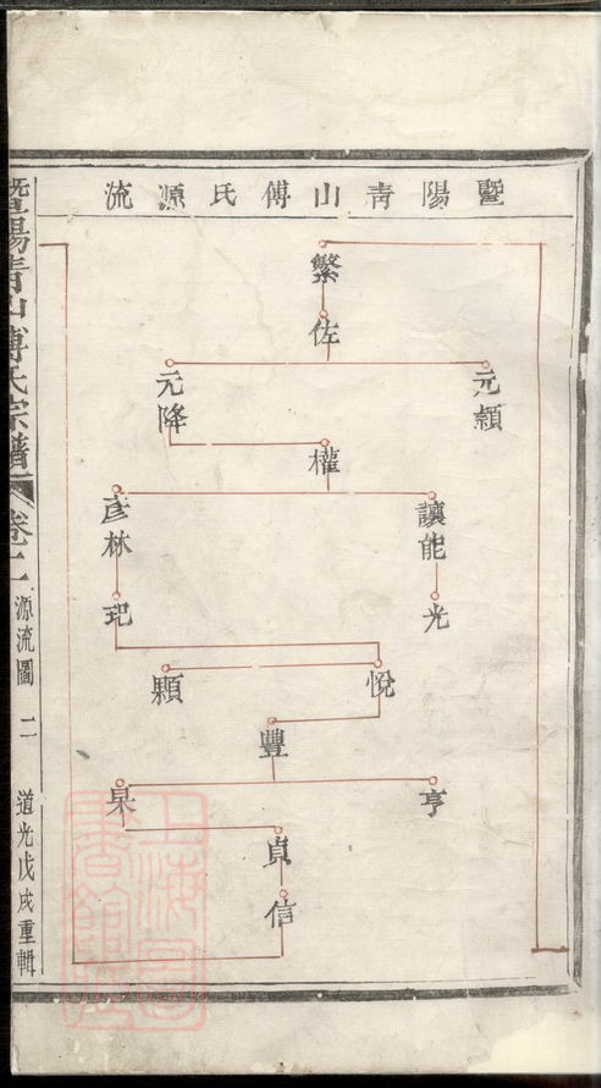 暨陽青山傅氏源流
繁
佐
元穎
元降
權
讓能
彥林
光
玘
悅
顯
豐
亨
杲
貞
信
暨陽青山傅氏宗譜
卷二
源流圖
二
道光戊戌重輯
上海圖書館藏